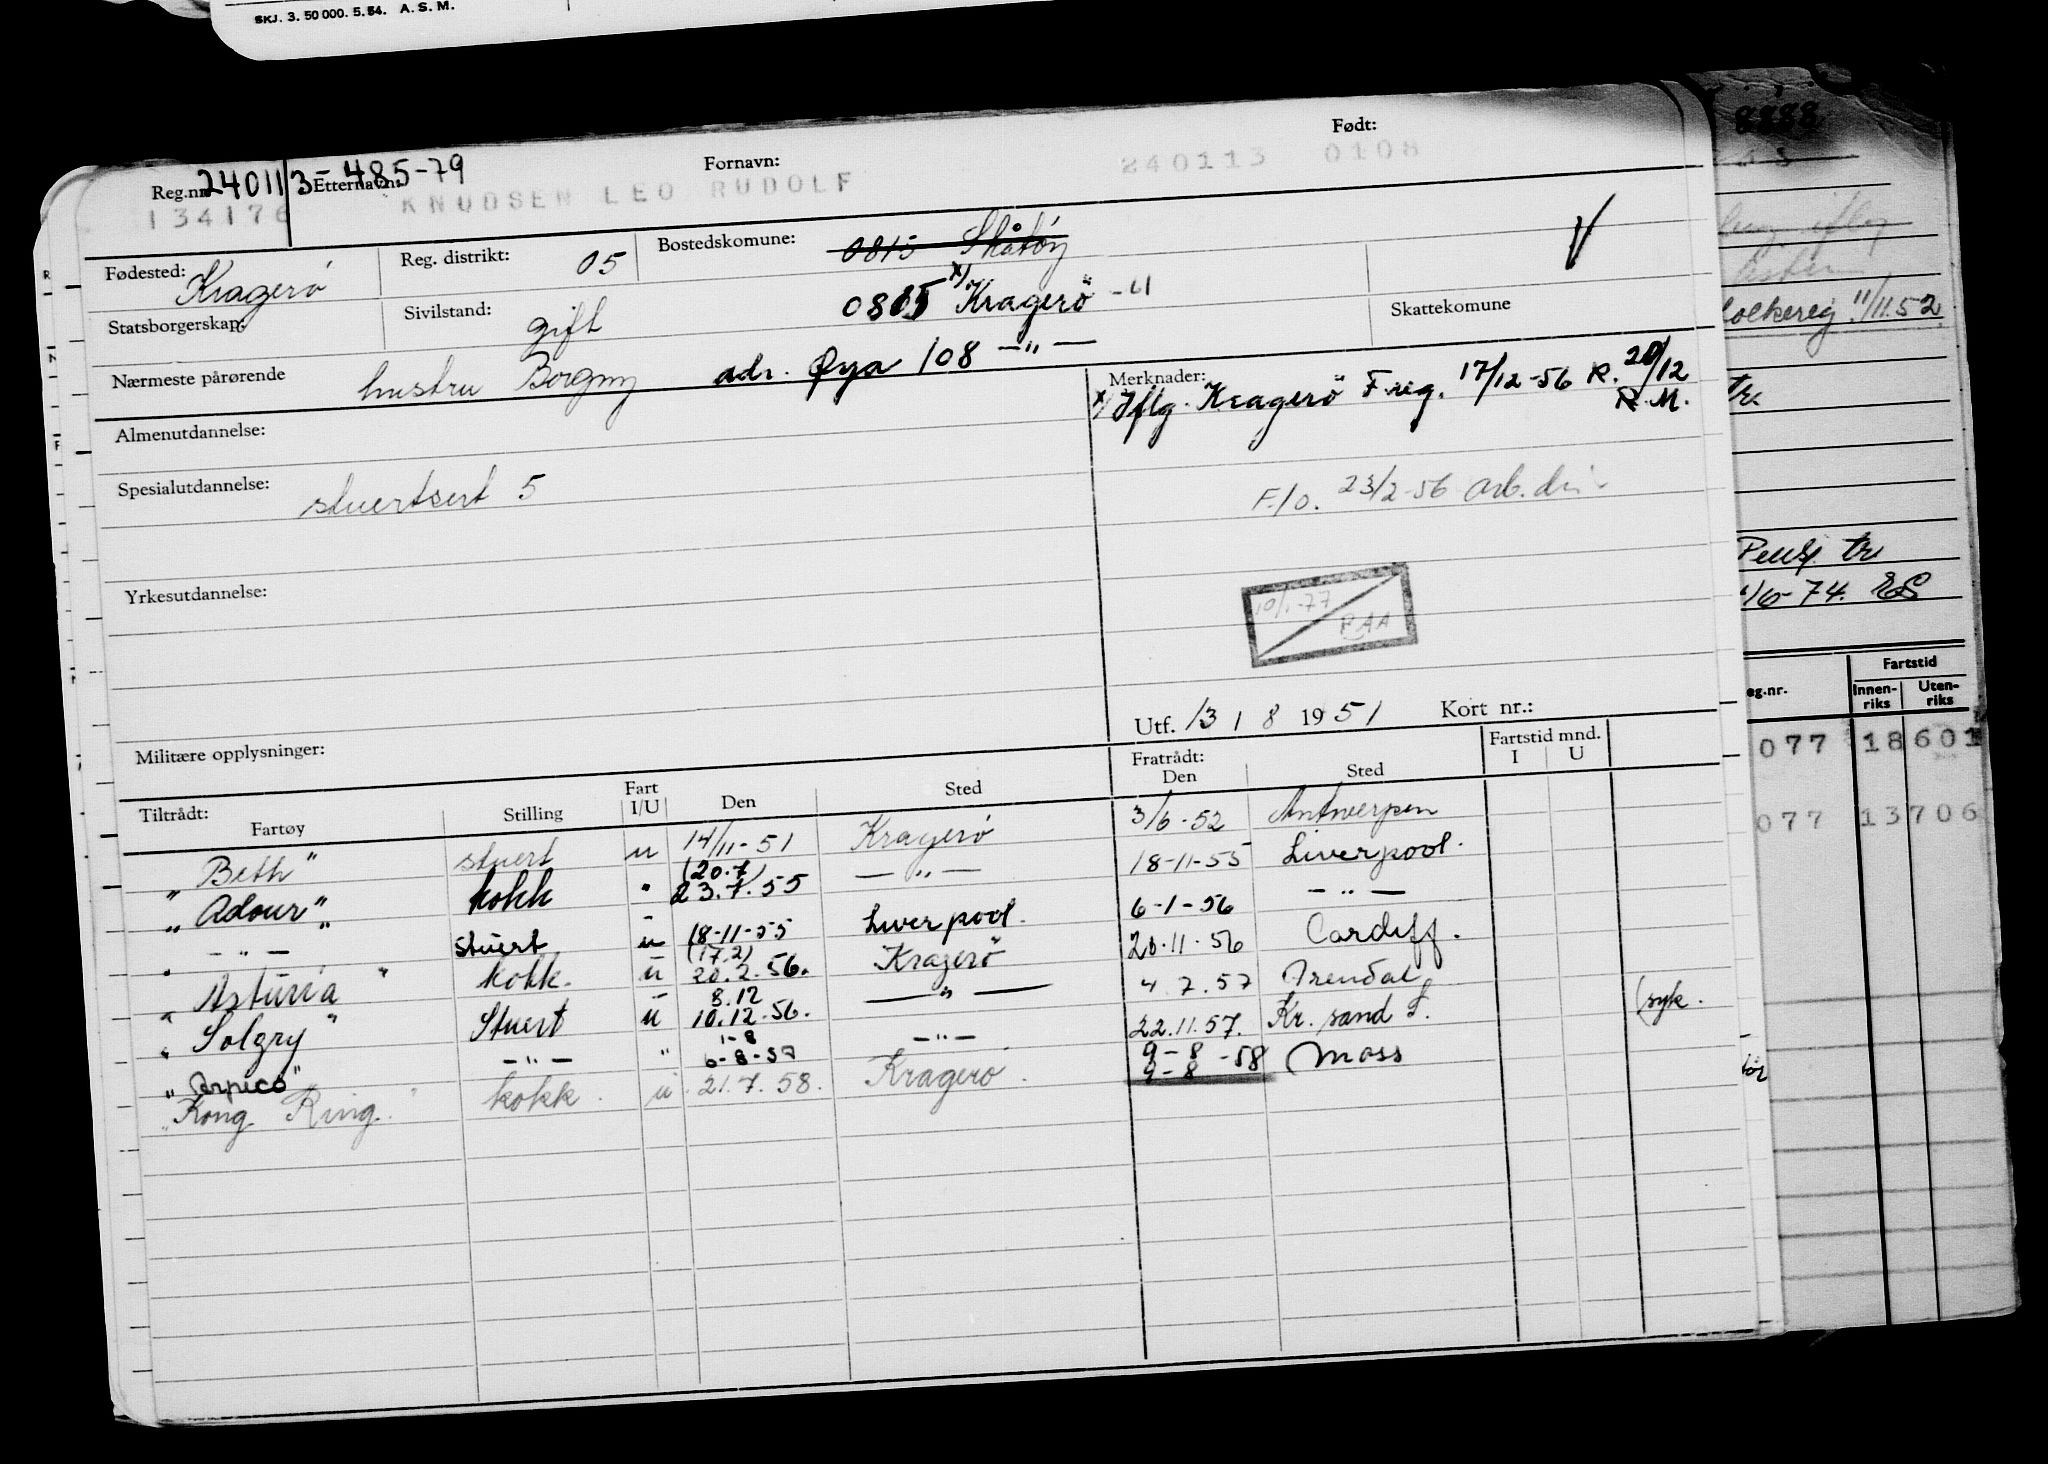 SKJ. 3. 50 000. 5. 54. A. S. M.
Reg.nr. 240113-485-79 Etternavn: Fornavn: Født:
134176 KNUDSEN LEO RUDOLF 240113 0108
Fødested: Kragerø Reg. distrikt: 05 Bostedskomune: 0815 Skåtøy
Statsborgerskap: Sivilstand: gift 0815 x) Kragerö -4 Skattekomune
Nærmeste pårørende hustru Borgny adr. Øya 108 — " — Merknader:
x) Iflg. Kragerö F.reg. 17/12-56 R. 20/12
R.M.
Almenutdannelse:
Spesialutdannelse: stuertsert 5
F/o. 23/2-56 arb.
Yrkesutdannelse:
10/1-77
PAA
Utf. 13 / 8 1951 Kort nr.:
Militære opplysninger:
Tiltrådt: Fratrådt: Fartstid mnd.
Fartøy Stilling Fart I/U Den Sted Den Sted I U
"Beth" stuert u 14/11-51 Kragerø 3/6-52 Antwerpen
"Adour" kokk " (20.7) 23.7.55 — " — 18-11-55 Liverpool.
" — " — " stuert u 18-11-55 Liverpool. 6-1-56 — " —
"Asturia" kokk. u (17.2) 20.2.56. Kragerö 20.11.56 Cardiff.
"Solgry" Stuert u 8.12 10.12.56. — " — 4.7.57 Arendal
"Arpico" — " — " 1-8 6-8-57 — " — 22.11.57. Kr. sand S. (syk.
"Kong Ring" kokk. u 21.7.58. Kragerø. 9-8-58 Moss
9-8
8888
folkereg. 11/11.52
tr.
Pensj. tr
1/6-74. ES
eg.nr. Fartstid
Innen-riks Uten-riks
077 18 601
077 13 706